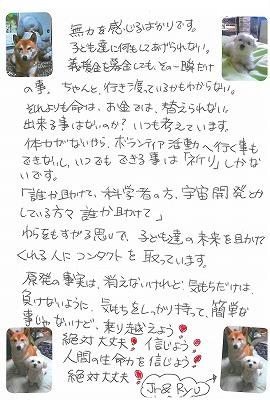 無力を感じるばかりです。
子ども達に何もしてあげられない。
義援金を募金しても、その一瞬だけ
の事。ちゃんと、行き渡っているかもわからない。
それよりも命は、お金では、替えられない。
出来る事はないのか？いつも考えています。
体力がないから、ボランティア活動へ行く事も
できないし、いつでもできる事は「祈り」しかない
です。
「誰か助けて、科学者の方、宇宙開発とか
している方々 誰か助けて」
わらをもすがる思いで、子ども達の未来を助けて
くれる人にコンタクトを取っています。
原発の事実は、消えないけれど、気持ちだけは、
負けないように、気持ちをしっかり持って、簡単な
事じゃないけど、乗り越えよう!
絶対大丈夫! 信じよう!
人間の生命力を信じよう!
絶対大丈夫! Jr&Ryu